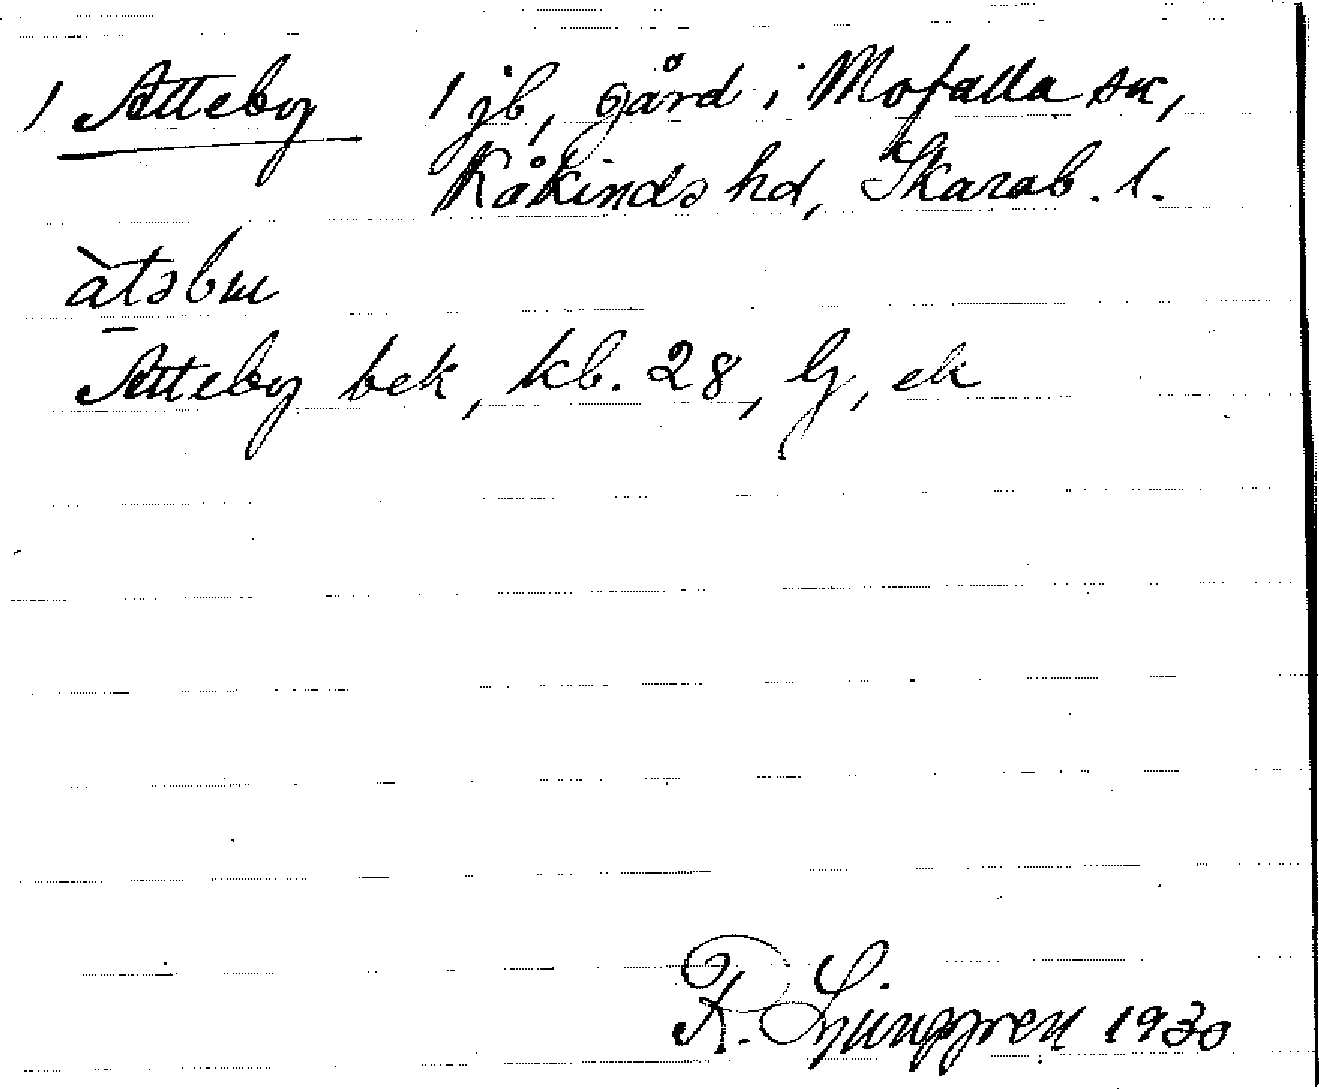 1 Atteby 1 jb, gård i Mofalla sn,
Kåkinds hd, Skarab. l.
àtəbʉ
Atteby bek, kb. 28, lj, ek
R. Ljunggren 1930